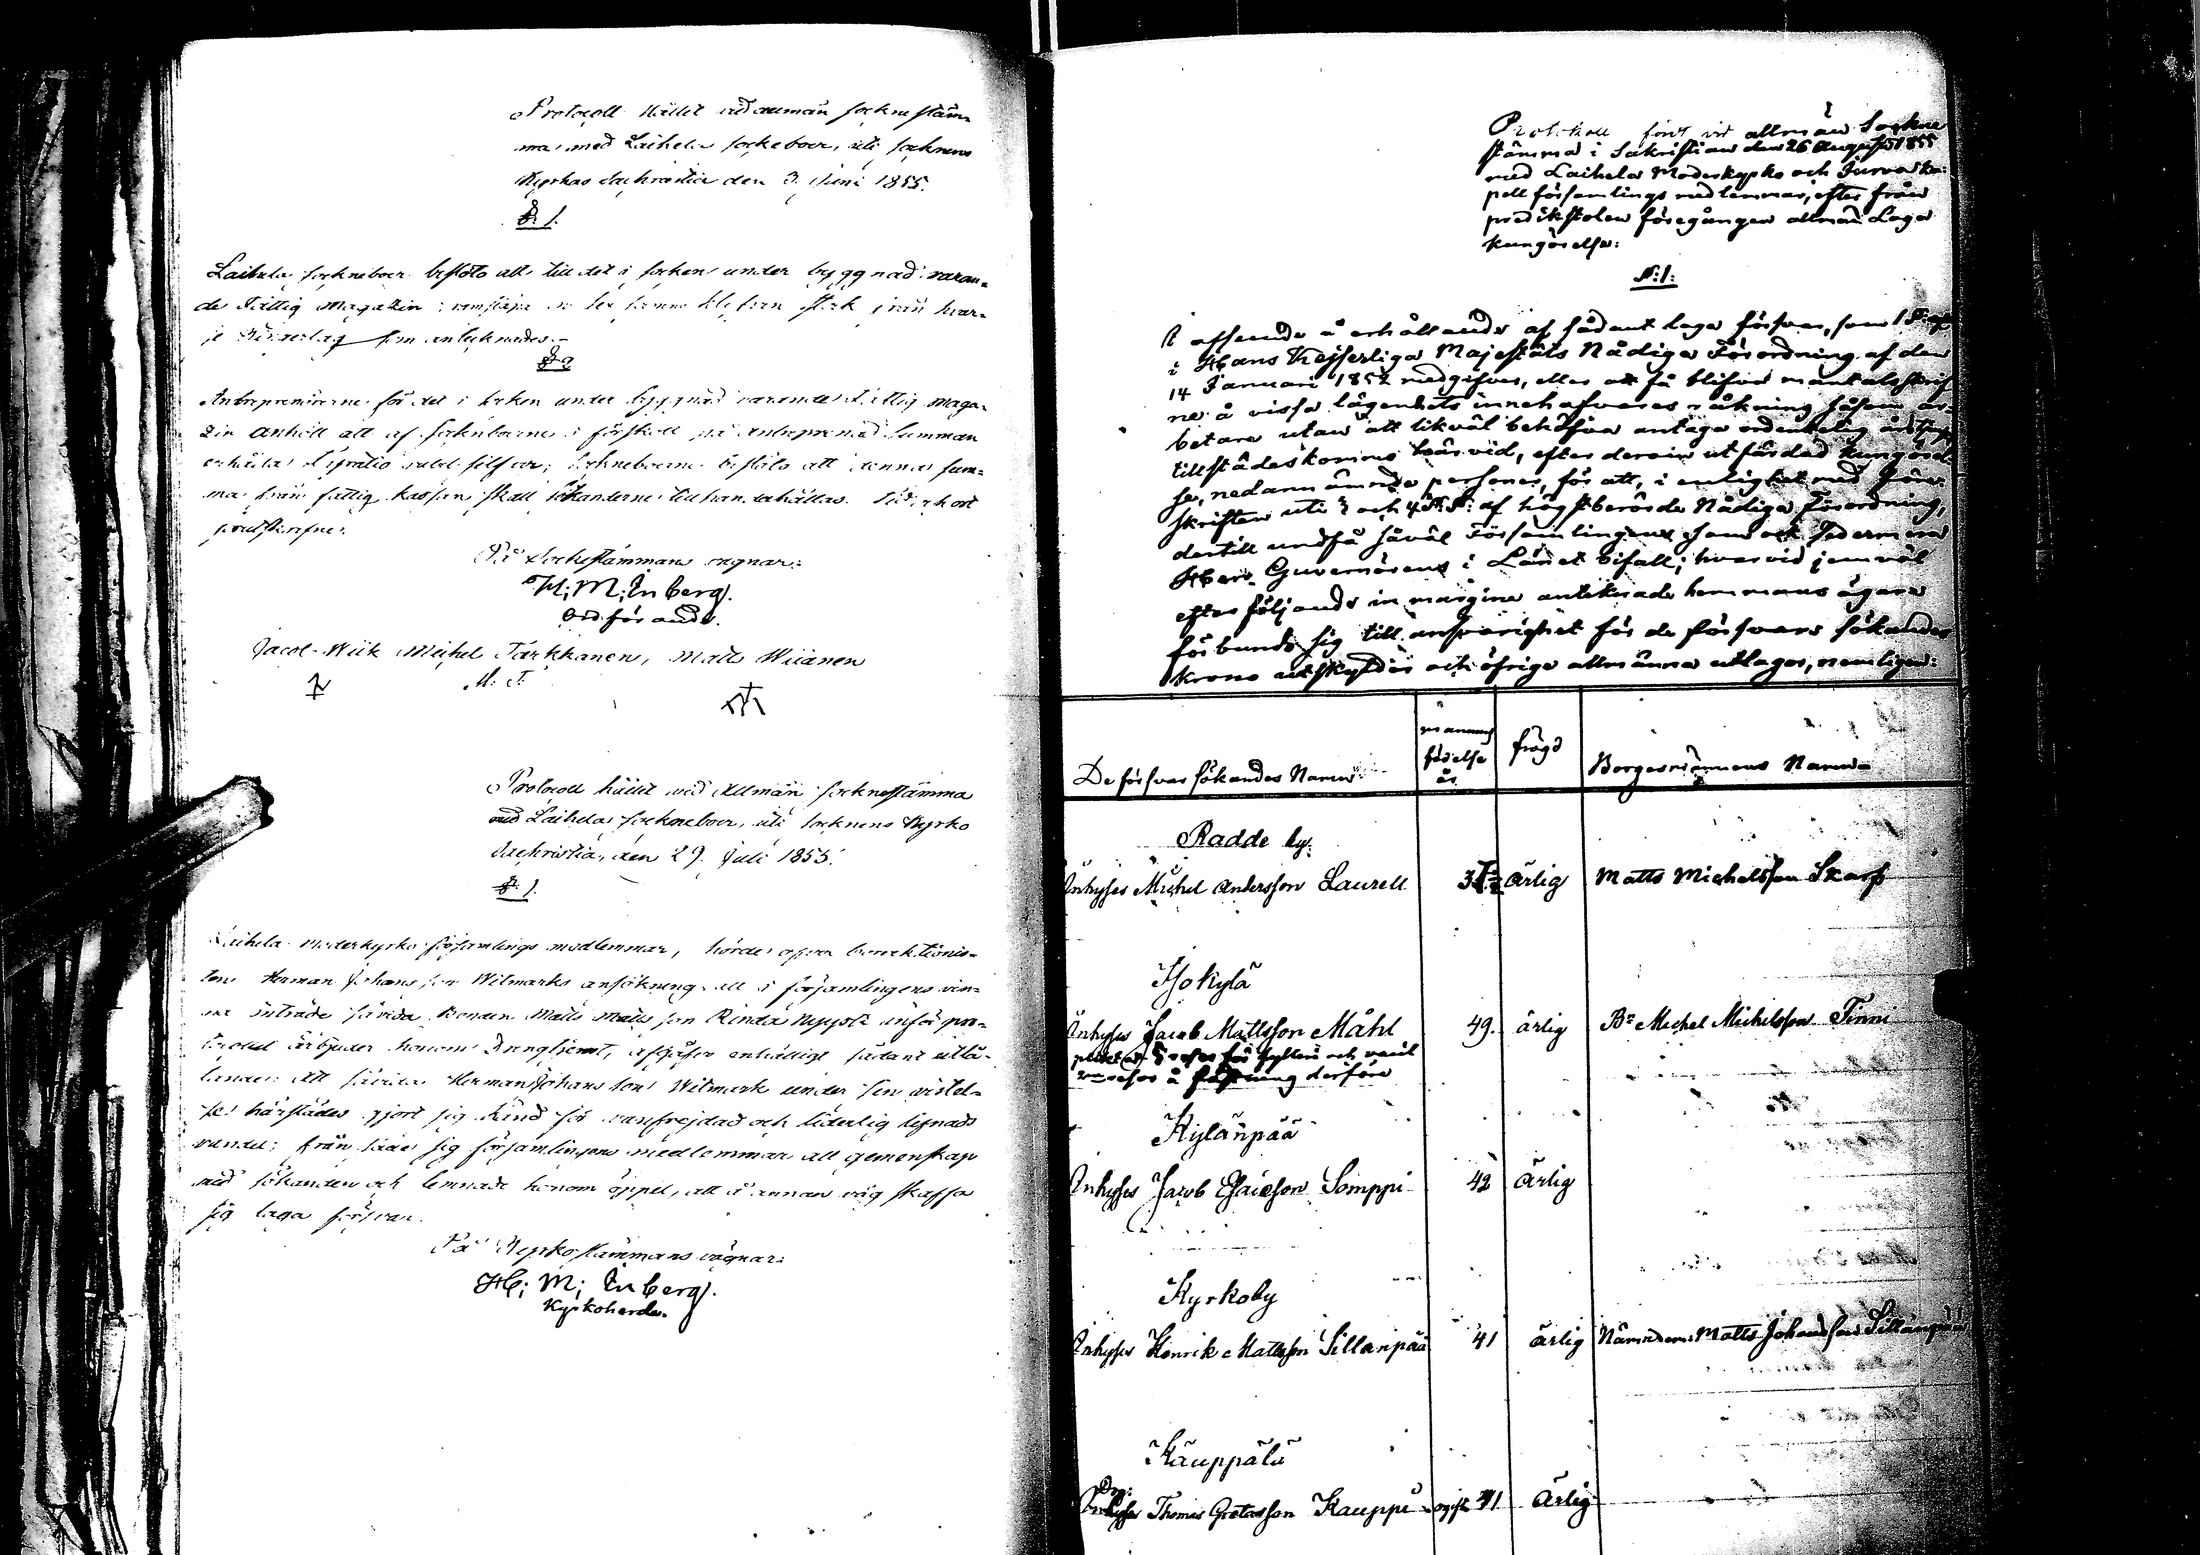 Protocoll hållit vid allmän sockne stäm-
ma med Laihela sockneboer, uti socknens
Kyrkas Sachristia den 3. Juni 1855.
§ 1.
Laihela sockneboer beslöto att till det i socken under byggnad varan-
de Fattig Magazin
je som anteknades.
§ 2
Entreprenörerne för det i socken under byggnad varande Fattig maga-
zin anhöll att af sockneboerne i förskott på Entreprenad Summan
erhålla silfver; sockneboerne beslöto att denna sum-
ma från fattig kassan skall sökanderne tillhandahållas. Tid och ort
förutskrefne.
På Sockestämmans vägnar:
H; M; Enberg.
Ordförande.
Jacob Wiik Michel Tarkkanen, Matts Wiianen
M. T.
Protocoll hållit vid Allmän socknestämma
med Laihela sockneboer, uti socknens Kyrko
Sachristia, den 29. Juli 1855.
§ 1.
Laihela moderkyrko församlings medlemmar, hördes öfver correktionis-
ten Herman Johansson Wilmarks ansökning att i församlingen vin-
na inträde sävida Bonden Matts Mattsson Rinda inför pro-
tocoll ärbjuder honom Drengtjenst, afgåfvo enhälligt sådant utlå-
tande: Att sävida Herman Johansson Wilmark under sin vistel-
se härstädes gjort sig känd för vanfrejdad och liderlig lefnads
vandel; från säde sig församlingens medlemmar all gemenskap
med sökanden och lemnade honom öppet, att å annan väg skaffa
sig laga försvar.
På Kyrko stämmans vägnar:
H; M; Enberg.
Kyrkoherde.
Protokoll fördt vid allmän Sockne
stämma i Sakristian den 26 Augusti 1855
med Laihela Moderkyrko och Jurva Ka-
pell församlings medlemmar, efter från
predikstolen föregången allmän Laga
kungörelse:
§:1:
I afseende å erhållande af sådant laga försvar, som 1
i Hans Kejserliga Majestäts Nådiga Förordning af den
14 Januari 1852 medgifves, eller att få blifva mantalsskrif-
ne å vissa lägenhets innehafvares räkning såsom ar-
betare utan att likväl behöfva antaga ordentelig
tillstädeskommo härvid, efter derom utfärdad kungörel-
se, nedannämnde personer, för att, i enlighet med före-
skriften uti 3 och 4 §.§. af högstberörde Nådiga Förordning,
dertill undfå såväl Församlingens som ock Federmera
Herr Guvernörens i Länet bifall; hvarvid jemväl
efterföljande in margine anteknade hemmans ägare
förbundo sig till ansvarighet för de försvars sökandes
krono utskylder och öfriga allmänna utlagor, nemligen:
De försvar sökandes Namn
mannens födelse år
frägd
Borgesmännens Namn
Radde by.
Inhyses Michel Andersson Laurell ärlig Matts Michelsson Skarp
Isokylä
Inhyses Jacob Mattsson Måhl 49. ärlig Bn Michel Michelsson Finni
Kylänpää
Inhyses Jacob Esaiesson Somppi 42 ärlig
Kyrkoby
Inhyses Henrik Mattsson Sillanpää 41 ärlig Nämndem: Matts Johansson Sillanpää
Kauppälä
Inhyses Thomas Gretasson Kauppi ogift 31 ärlig